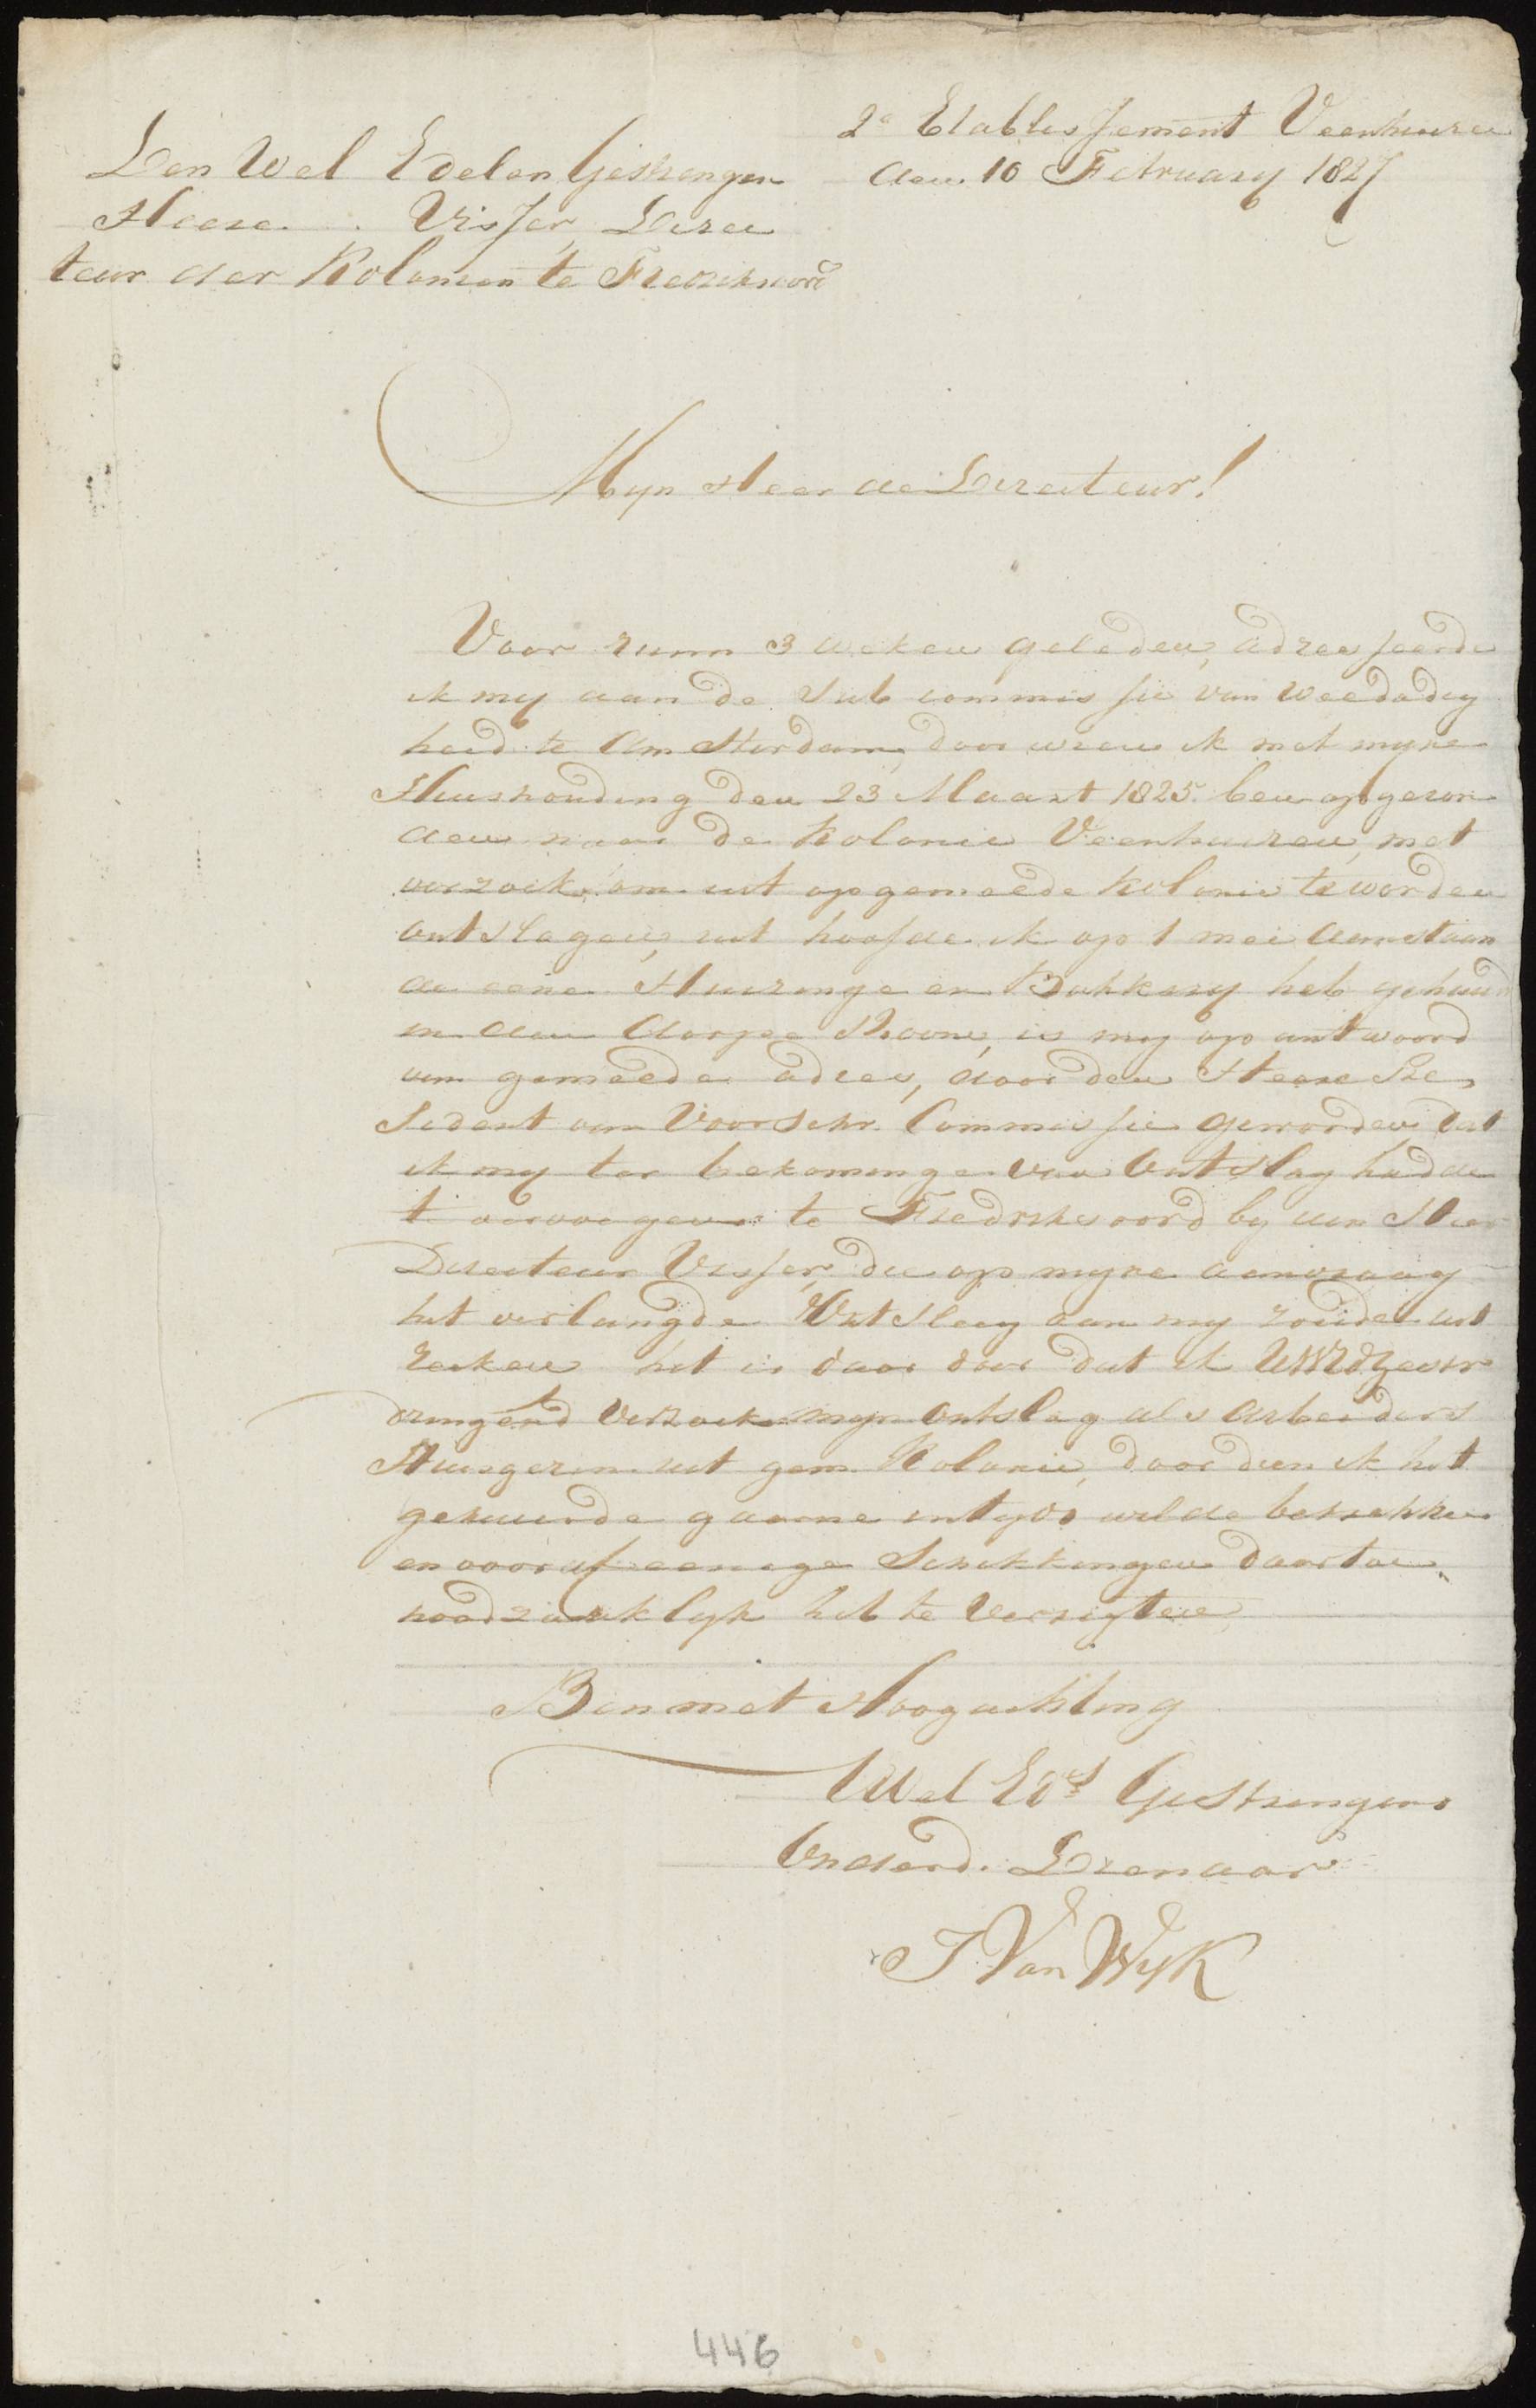 2e Etablissement Veenhuizen
den 10 February 1827
Den Wel Edelen Gestrengen
Heere Visser, Direc
teur der Kolonien te Fredriksoord
Mijn Heer de Directeur!
Voor ruim 3 weken geleden, adresseerde
ik mij aan de Sub commissie van Weldadig
heid te Amsterdam, door wien ik met mijne
Huishouding den 23 Maart 1825 ben opgezon
den naar de Kolonie Veenhuizen, met
verzoek, om uit opgemelde Kolonie te worden
ontslagen, uit hoofde ik op 1 mei aanstaan
de eene Huizinge en Bakkerij heb gehuurd
in den dorpe Rhoon, is mij op antwoord
van gemelde adres, door den Heere Pre
sident van Voorschr. Commissie geworden dat
ik mij ter bekominge van Ontslag hadde
t vervoegen te Fredriksoord bij den Heer
Directeur Visser, die op mijne aanvraag
het verlangde Ontslag aan mij zoude uit
reiken het is daar door dat ik
dringend verzoeke mijn ontslag als arbeiders
Huisgezin uit gem. Kolonie, door dien ik het
gehuurde gaarne intijds wilde betrekken
en vooraf eenige Schikkingen daartoe
noodzaaklijk heb te verrigten
Ben met Hoogachting
Wel Eds Gestrengens
Onderd. Dienaar
J Van Wijk
446